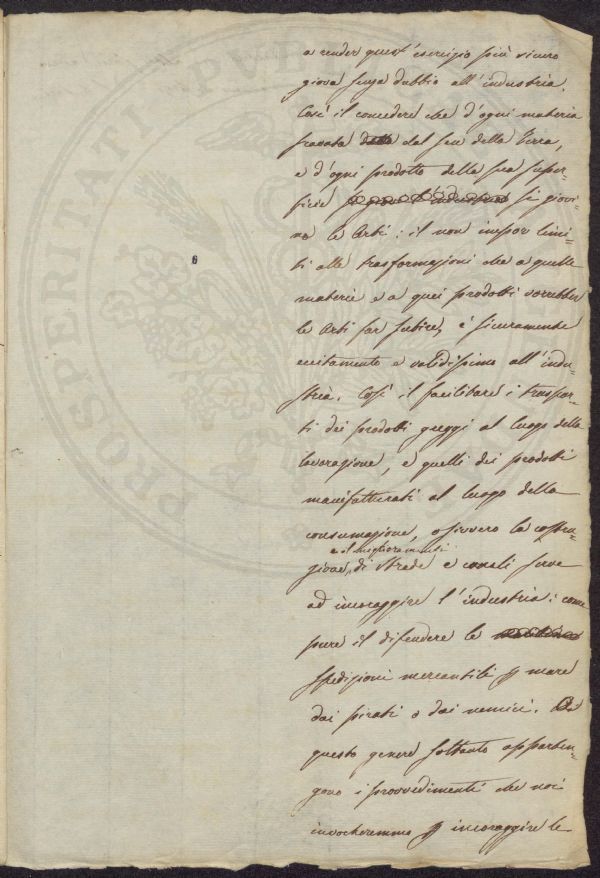 a render quest'esercizio più sicuro
giova senza dubbio all'industria.
Così il concedere che d'ogni materia
scavata dal sen della Terra,
e d'ogni prodotto della sua super-
ficie si giovi-
no le Arti: il non impor limi-
ti alle trasformazioni che a quelle
materie e a quei prodotti vorrebber
le Arti far subire, è sicuramente
eccitamento e validissimo all'indu-
stria. Così il facilitare i traspor-
ti dei prodotti greggi al luogo della
lavorazione, e quelli dei prodotti
manifatturati al luogo della
consumazione, ossivvero la costru-
e il miglioramento
zione, di strade e canali serve
ad incoraggire l'industria: come
pure il difendere le
spedizioni mercantili p mare
dai pirati o dai nemici. Di
questo genere soltanto apparten-
gono i provvedimenti che noi
invocheremmo p incoraggire le
PROSPERITATI PVB